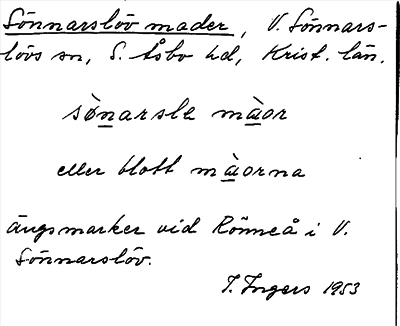 Sönnarslöv mader, V. Sönnars-
lövs sn, S. Åsbo hd, Krist. län.
sònarsle màor
eller blott màorna
ängsmarker vid Rönneå i V.
Sönnarslöv.
I. Ingers 1953